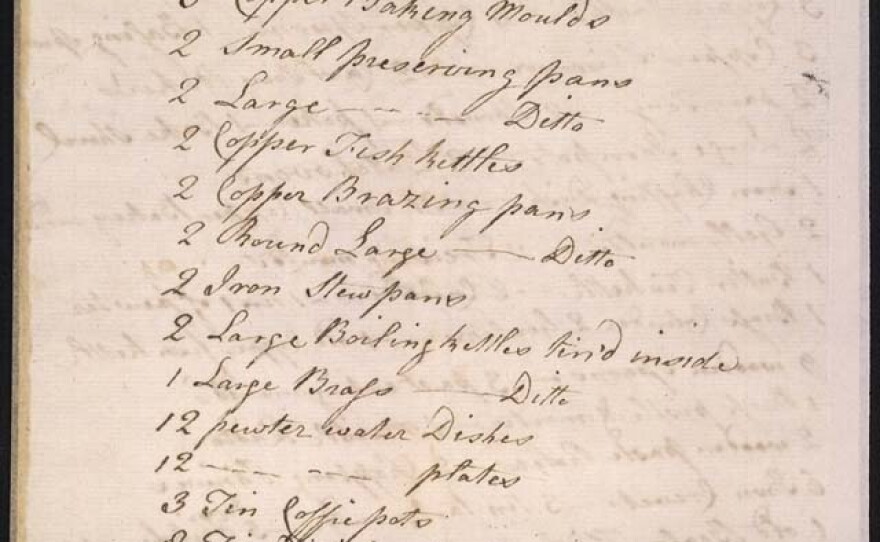 Copper Baking Moulds
2 Small preserving pans
2 Large - - - - Ditto
2 Copper Fish kettles
2 Copper Brazing pans
2 Round Large — Ditto
2 Iron Stewpans
2 Large Boiling kettles tin'd inside
1 Large Brass — Ditto
12 pewter water Dishes
12 - - - - plates
3 Tin Coffiepots